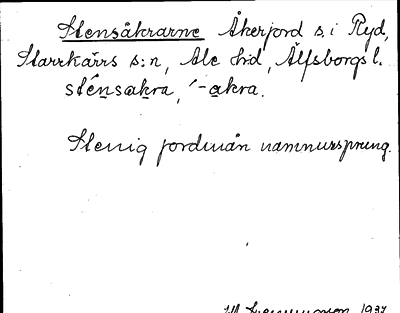 Stensåkrarne Åkerjord s. i Ryd,
Starrkärrs s:n, Ale hd, Älfsborgs l.
sténsakra, ´-akra.
Stenig jordmån namnursprung.
1937